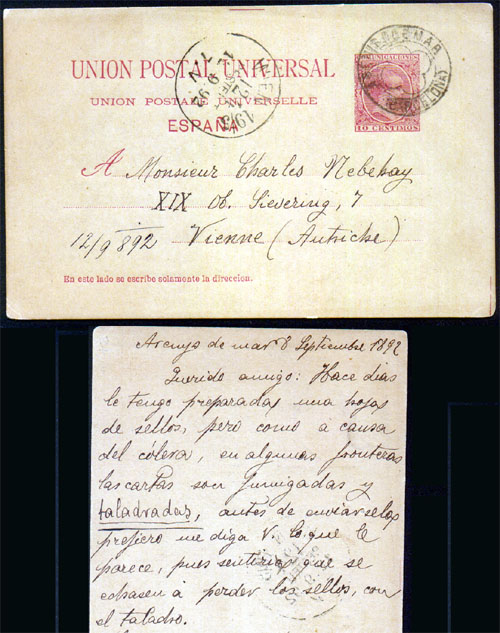 UNION POSTAL UNIVERSAL
UNION POSTALE UNIVERSELLE
ESPAÑA
COMUNICACIONES
10 CENTIMOS
A Monsieur Charles Nebehay
XIX Ob. Sievering, 7
12/9 892 Vienne (Autriche)
En este lado se escribe solamente la direccion.
Arenys de mar 8 Septiembre 1892
Querido amigo: Hace dias
le tengo preparadas una hojas
de sellos, pero como a causa
del cólera, en algunas fronteras
las cartas son fumigadas y
taladradas, antes de enviárselos
prefiero me diga V. lo que le
parece, pues sentiria que se
echasen á perder los sellos, con
el taladro.